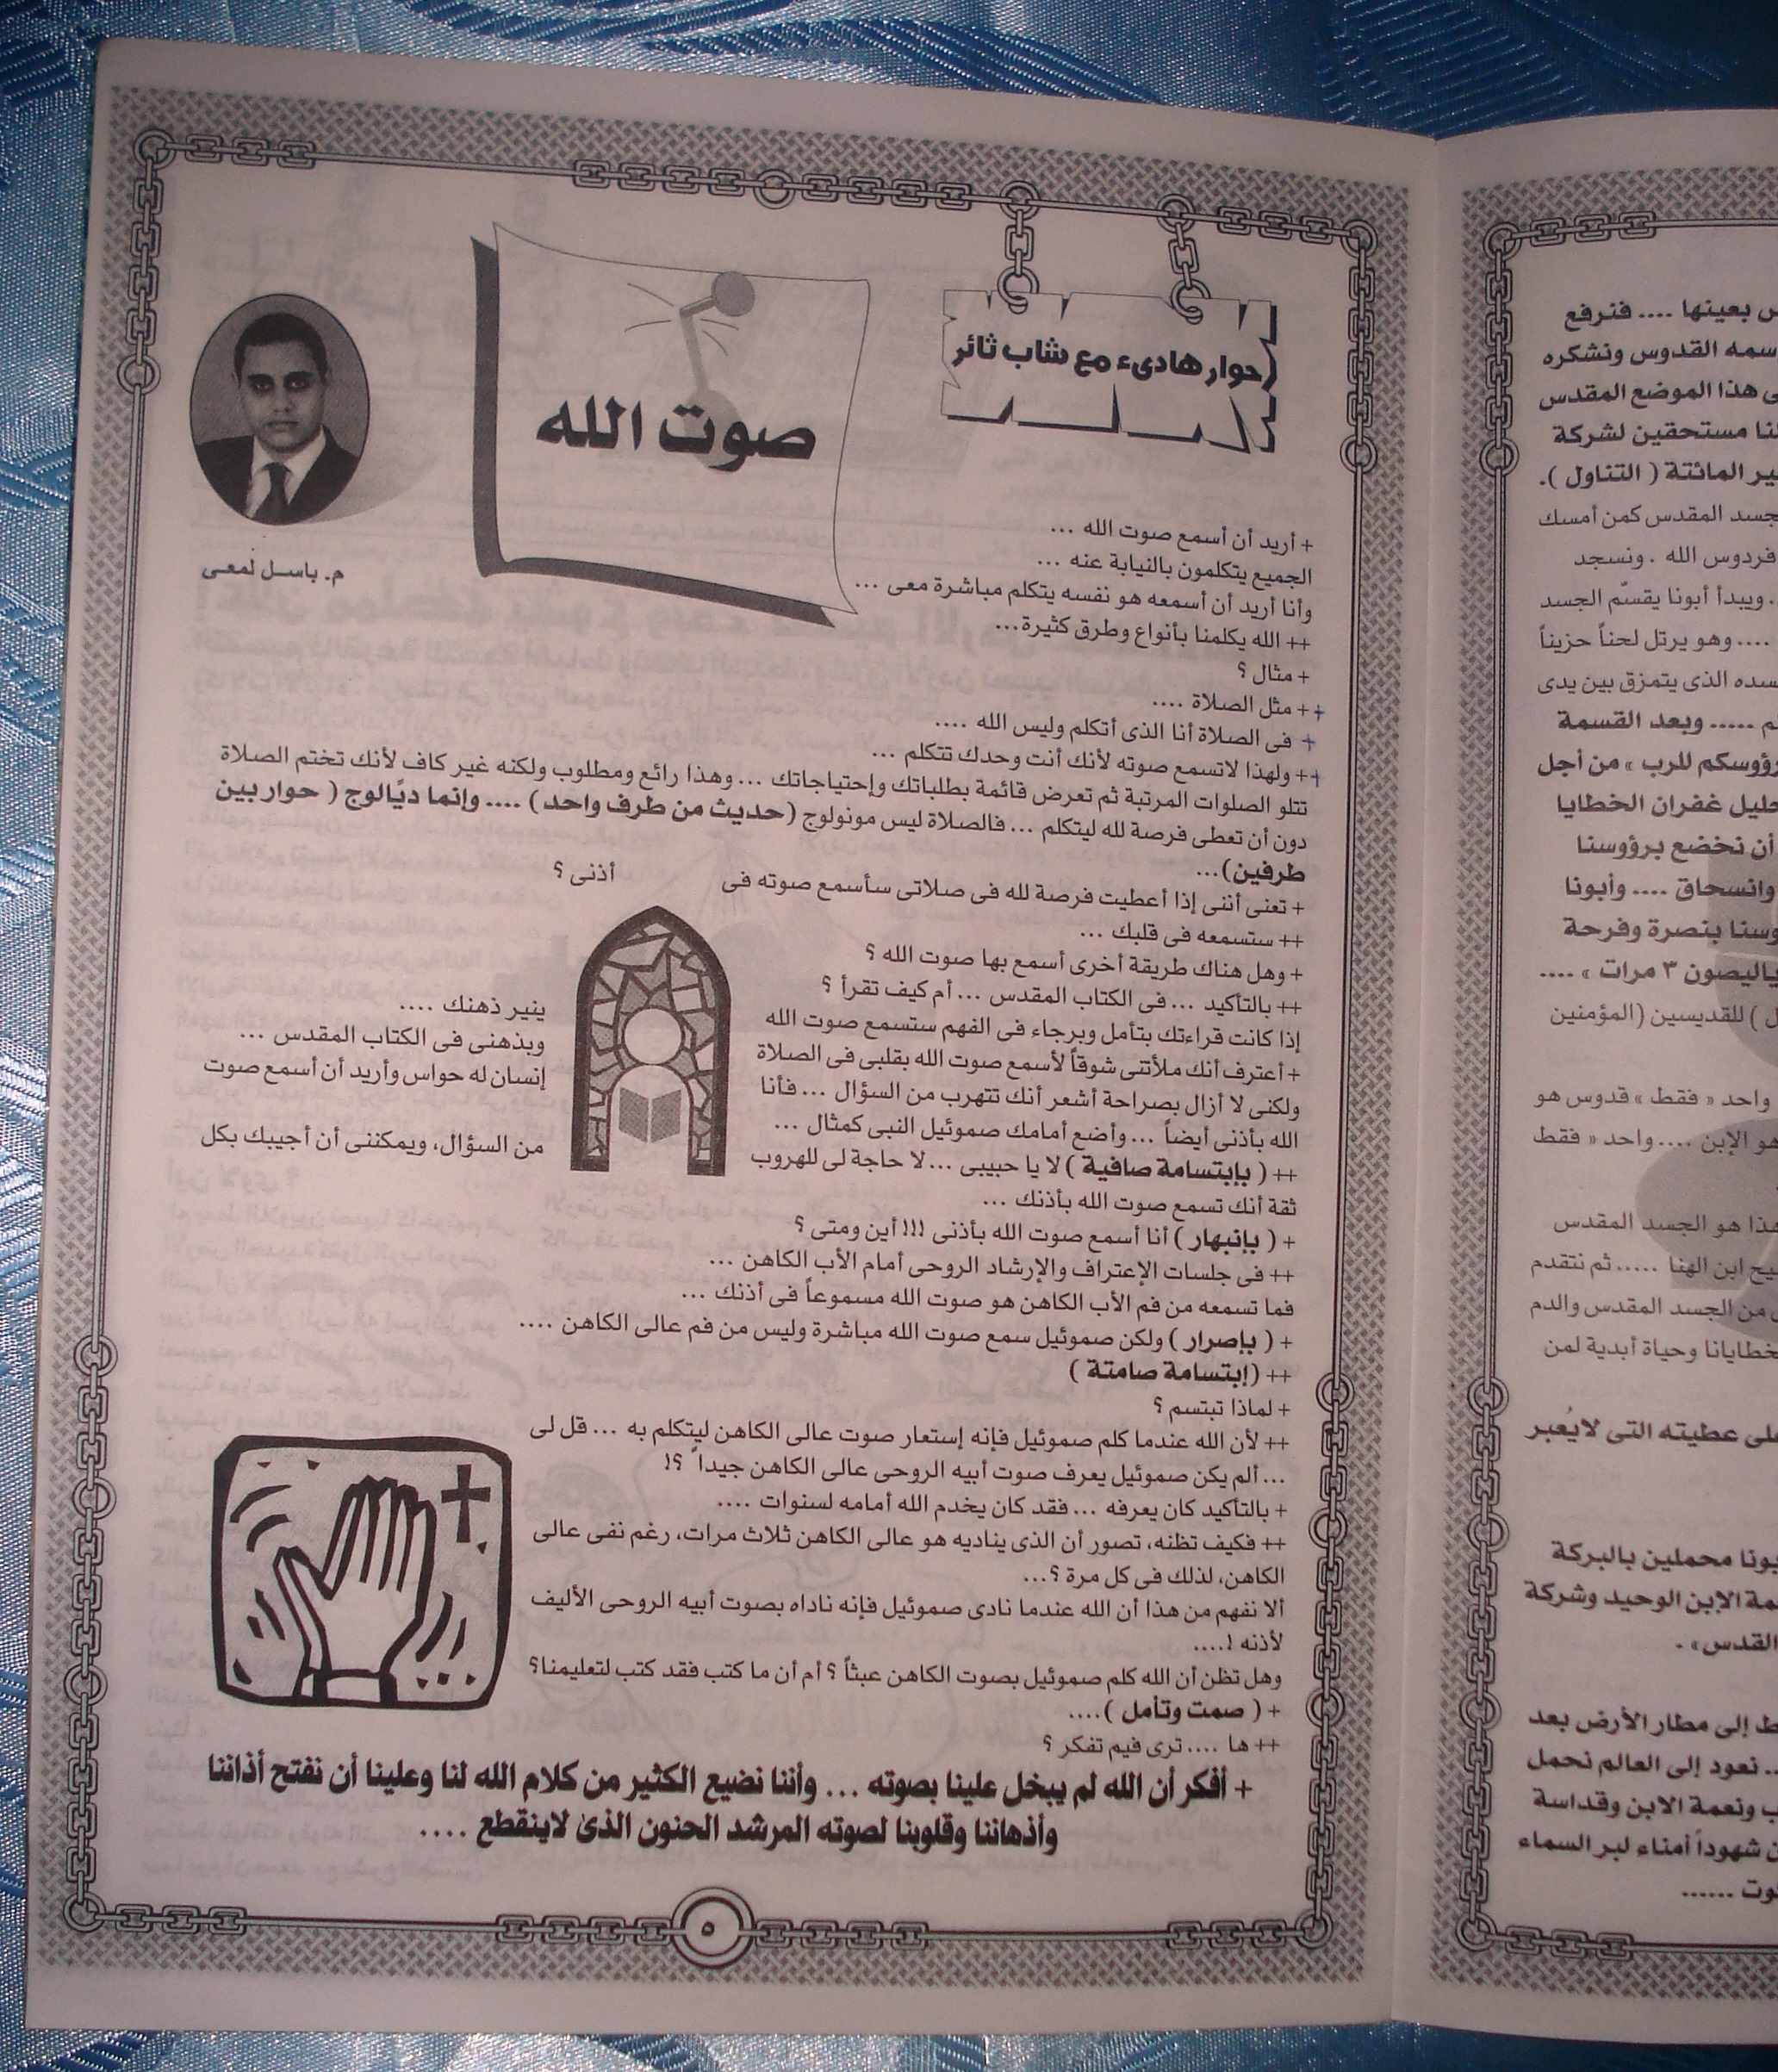 حوار هادىء مع شاب ثائر
صوت الله
م. باسل لمعى
+ أريد أن أسمع صوت الله ...
الجميع يتكلمون بالنيابة عنه ...
وأنا أريد أن أسمعه هو نفسه يتكلم مباشرة معى ...
++ الله يكلمنا بأنواع وطرق كثيرة...
+ مثال ؟
++ مثل الصلاة ....
+ فى الصلاة أنا الذى أتكلم وليس الله ....
++ ولهذا لاتسمع صوته لأنك أنت وحدك تتكلم ...
تتلو الصلوات المرتبة ثم تعرض قائمة بطلباتك وإحتياجاتك ... وهذا رائع ومطلوب ولكنه غير كاف لأنك تختم الصلاة
دون أن تعطى فرصة لله ليتكلم ... فالصلاة ليس مونولوج (حديث من طرف واحد) .... وإنما ديالوج ( حوار بين
طرفين)...
+ تعنى أننى إذا أعطيت فرصة لله فى صلاتى سأسمع صوته فى أذنى ؟
++ ستسمعه فى قلبك ...
+ وهل هناك طريقة أخرى أسمع بها صوت الله ؟
++ بالتأكيد ... فى الكتاب المقدس ... أم كيف تقرأ ؟
إذا كانت قراءتك بتأمل وبرجاء فى الفهم ستسمع صوت الله ينير ذهنك ....
+ أعترف أنك ملأتنى شوقاً لأسمع صوت الله بقلبى فى الصلاة وبذهنى فى الكتاب المقدس ...
ولكنى لا أزال بصراحة أشعر أنك تتهرب من السؤال ... فأنا إنسان له حواس وأريد أن أسمع صوت
الله بأذنى أيضاً ... وأضع أمامك صموئيل النبى كمثال ...
++ ( بإبتسامة صافية ) لا يا حبيبى ... لا حاجة لى للهروب من السؤال، ويمكننى أن أجيبك بكل
ثقة أنك تسمع صوت الله بأذنك ...
+ ( بإنبهار ) أنا أسمع صوت الله بأذنى !!! أين ومتى ؟
++ فى جلسات الإعتراف والإرشاد الروحى أمام الأب الكاهن ...
فما تسمعه من فم الأب الكاهن هو صوت الله مسموعاً فى أذنك ...
+ ( بإصرار ) ولكن صموئيل سمع صوت الله مباشرة وليس من فم عالى الكاهن ....
++ (إبتسامة صامتة )
+ لماذا تبتسم ؟
++ لأن الله عندما كلم صموئيل فإنه إستعار صوت عالى الكاهن ليتكلم به ... قل لى
... ألم يكن صموئيل يعرف صوت أبيه الروحى عالى الكاهن جيداً ؟!
+ بالتأكيد كان يعرفه ... فقد كان يخدم الله أمامه لسنوات ....
++ فكيف تظنه، تصور أن الذى يناديه هو عالى الكاهن ثلاث مرات، رغم نفى عالى
الكاهن، لذلك فى كل مرة ؟...
ألا نفهم من هذا أن الله عندما نادى صموئيل فإنه ناداه بصوت أبيه الروحى الأليف
لأذنه !....
وهل تظن أن الله كلم صموئيل بصوت الكاهن عبثاً ؟ أم أن ما كتب فقد كتب لتعليمنا؟
+ ( صمت وتأمل )....
++ ها .... ترى فيم تفكر ؟
+ أفكر أن الله لم يبخل علينا بصوته ... وأننا نضيع الكثير من كلام الله لنا وعلينا أن نفتح أذاننا
وأذهاننا وقلوبنا لصوته المرشد الحنون الذى لاينقطع ....
٥
بعينها .... فنرفع
سمه القدوس ونشكره
هذا الموضع المقدس
مستحقين لشركة
المائتة ( التناول ).
جسد المقدس كمن أمسك
فردوس الله . ونسجد
. ويبدأ أبونا يقسّم الجسد
.... وهو يرتل لحناً حزيناً
الذى يتمزق بين يدى
..... وبعد القسمة
رؤوسكم للرب » من أجل
غفران الخطايا
أن نخضع برؤوسنا
وانسحاق .... وأبونا
بنصرة وفرحة
ياليصون ٣ مرات » ....
) للقديسين (المؤمنين
واحد « فقط » قدوس هو
هو الإبن .... واحد « فقط
هذا هو الجسد المقدس
ابن الهنا ..... ثم نتقدم
من الجسد المقدس والدم
وحياة أبدية لمن
عطيته التى لايُعبر
محملين بالبركة
الإبن الوحيد وشركة
القدس» .
إلى مطار الأرض بعد
.. نعود إلى العالم نحمل
ونعمة الابن وقداسة
شهوداً أمناء لبر السماء
......